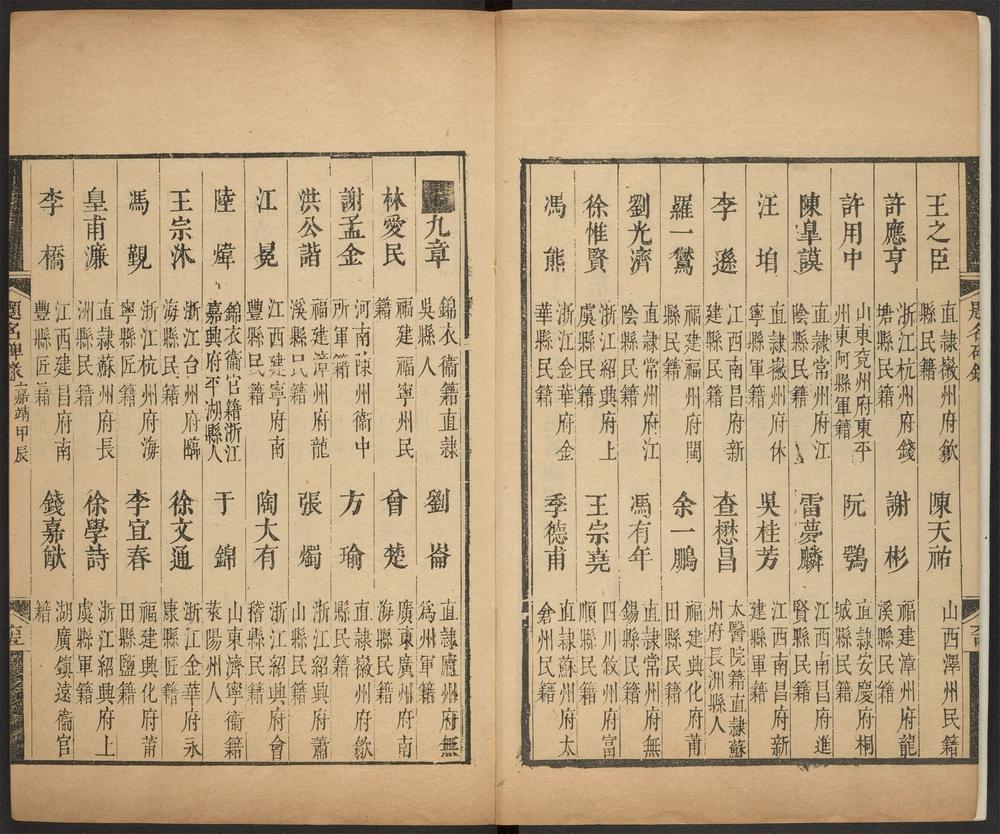 王之臣 直隸徽州府歙縣民籍 陳天祐 山西澤州民籍
許應亨 浙江杭州府錢塘縣民籍 謝彬 福建漳州府龍溪縣民籍
許用中 山東兖州府東平州東阿縣軍籍 阮鶚 直隸安慶府桐城縣民籍
陳臯謨 直隸常州府江陰縣民籍 雷夢麟 江西南昌府進賢縣民籍
汪垍 直隸徽州府休寧縣軍籍 吳桂芳 江西南昌府新建縣軍籍
李遜 江西南昌府新建縣民籍 查懋昌 太醫院籍直隸蘇州府長洲縣人
羅一鶩 福建福州府閩縣民籍 余一鵬 福建興化府莆田縣民籍
劉光濟 直隸常州府江陰縣民籍 馮有年 直隸常州府無錫縣民籍
徐惟賢 浙江紹興府上虞縣民籍 王宗堯 四川敘州府富順縣民籍
馮熊 浙江金華府金華縣民籍 季德甫 直隸蘇州府太倉州民籍
九章 錦衣衞籍直隸吳縣人 劉崙 直隸廬州府無爲州軍籍
林愛民 福建福寧州民籍 曾楚 廣東廣州府南海縣民籍
謝孟金 河南陳州衞中所軍籍 方瑜 直隸徽州府歙縣民籍
洪公諧 福建漳州府龍溪縣民籍 張燭 浙江紹興府蕭山縣民籍
江冕 江西建寧府南豐縣民籍 陶大有 浙江紹興府會稽縣民籍
陸煒 錦衣衞官籍浙江嘉興府平湖縣人 于錦 山東濟寧衞籍萊陽州人
王宗沐 浙江台州府臨海縣民籍 徐文通 浙江金華府永康縣匠籍
馮覲 浙江杭州府海寧縣匠籍 李宜春 福建興化府莆田縣鹽籍
皇甫濂 直隸蘇州府長洲縣民籍 徐學詩 浙江紹興府上虞縣軍籍
李橋 江西建昌府南豐縣匠籍 錢嘉猷 湖廣鎮遠衞官籍
題名碑錄 嘉靖甲辰